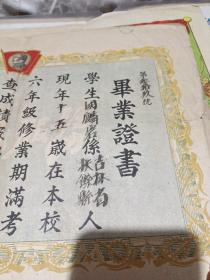 畢業證書
學生國麟岩係吉林省
扶餘縣人
現年十五歲在本校
六年級修業期滿考
查成績